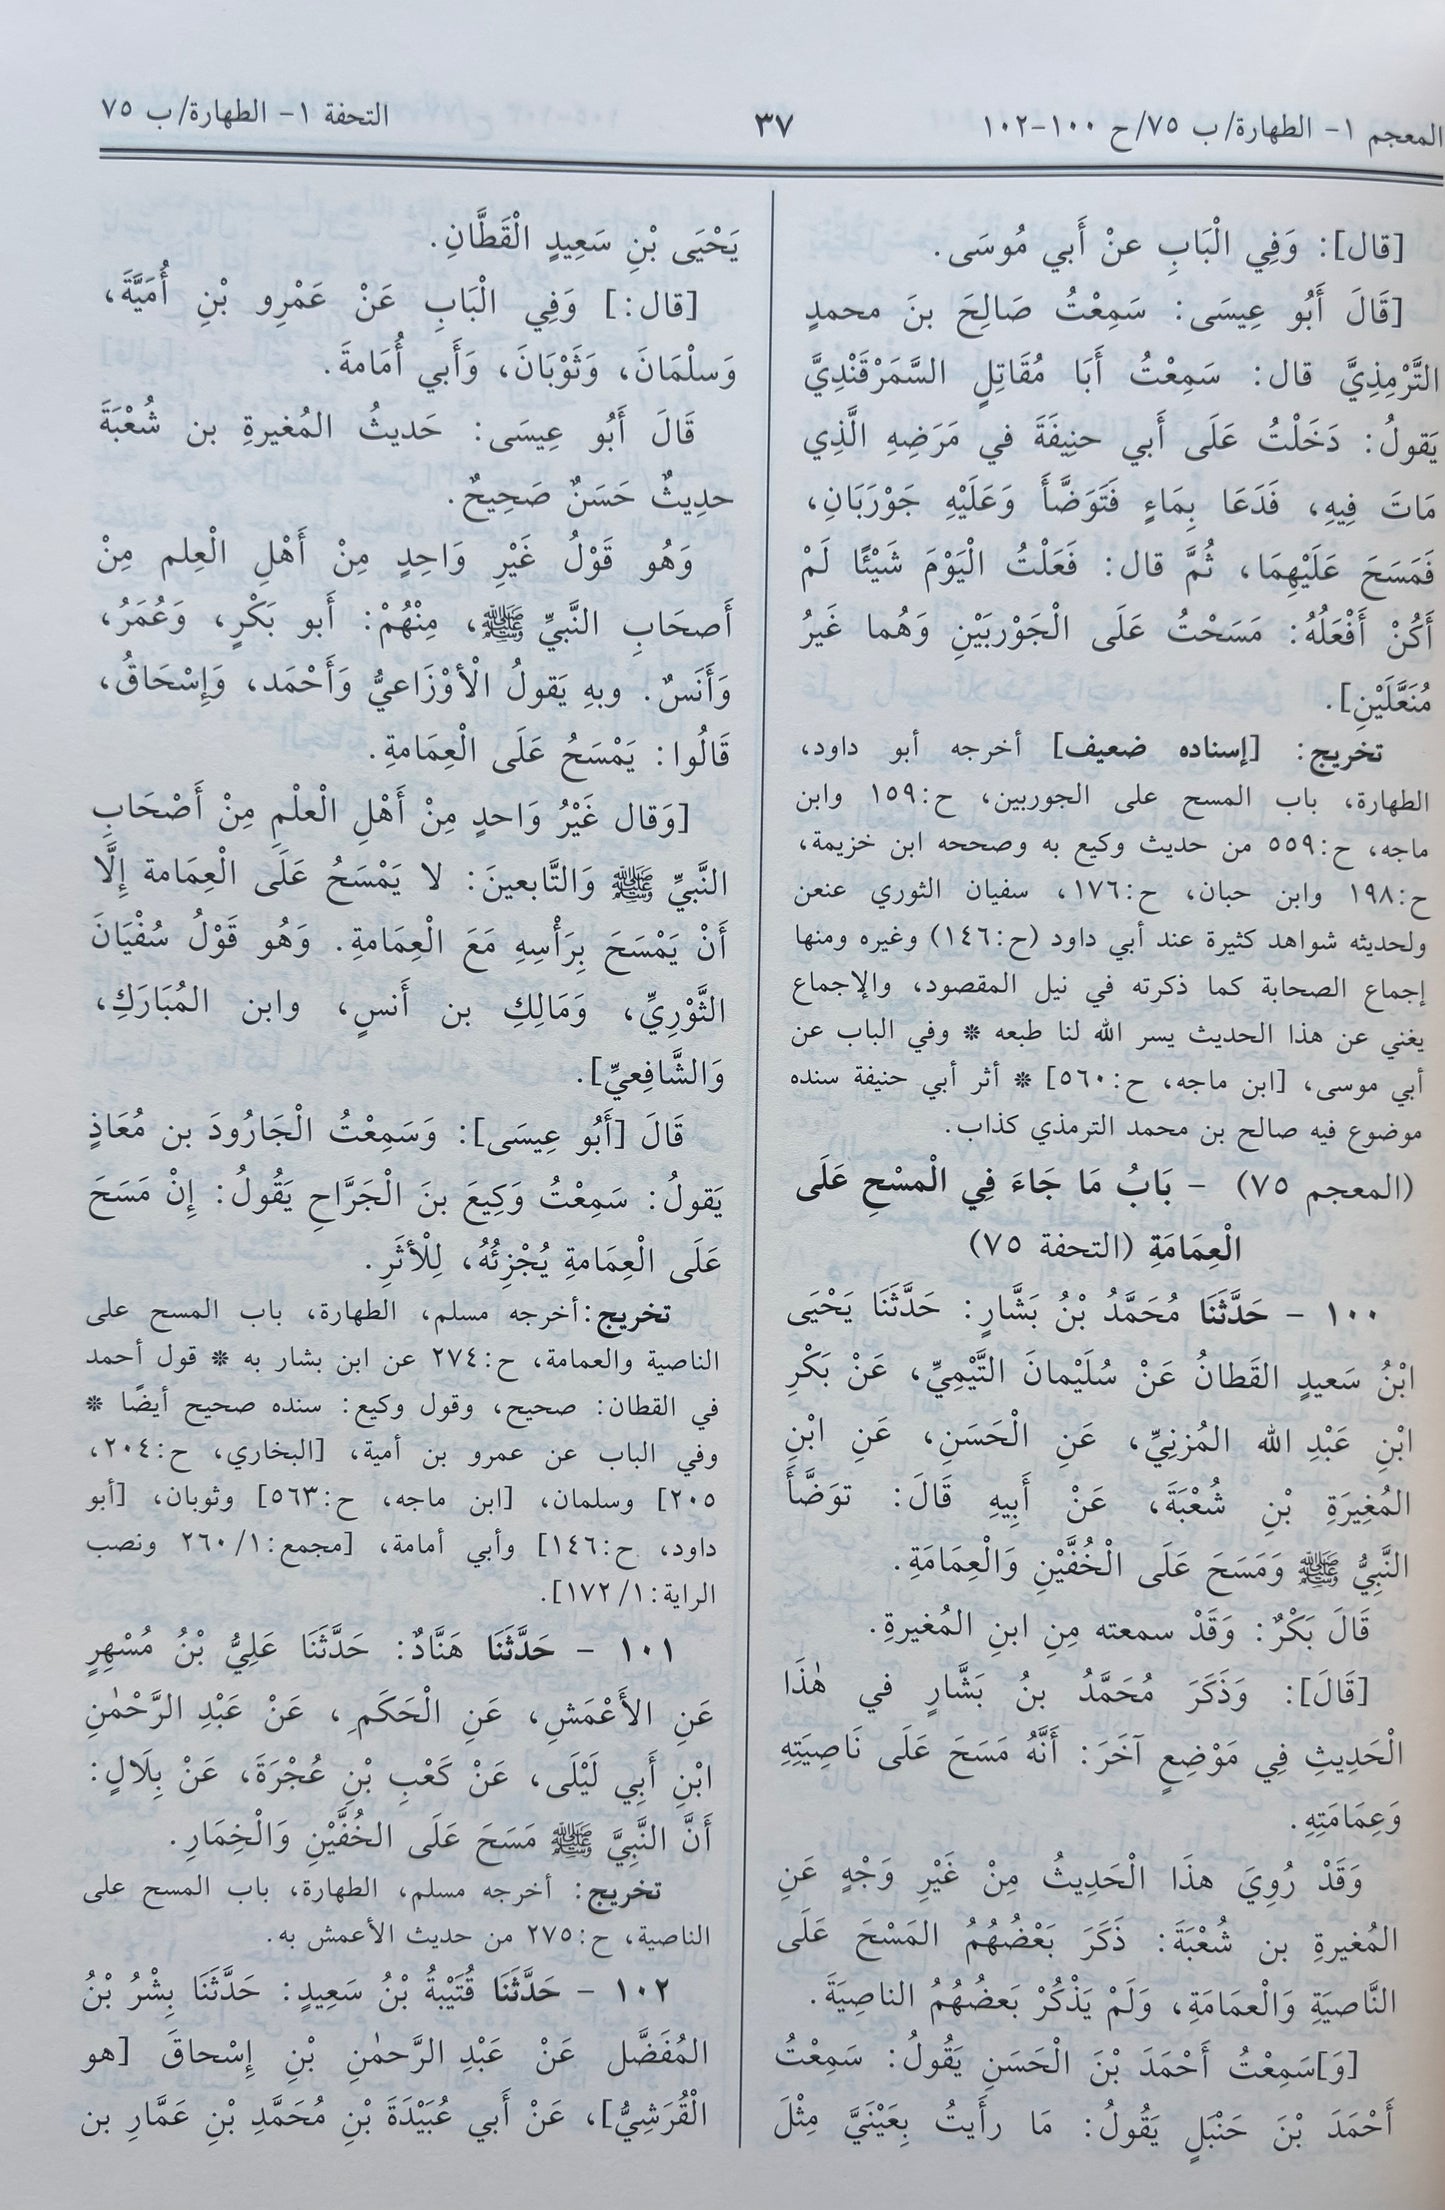 المعجم ١- الطهارة/ ب ٧٥/ ح ١٠٠-١٠٢
٣٧
التحفة ١- الطهارة/ ب ٧٥
[قال]: وَفِي الْبَابِ عنْ أَبي مُوسَى.
[قَالَ أَبُو عِيسَى: سَمِعْتُ صَالِحَ بنَ محمدٍ
التَّرْمِذِيَّ قال: سَمِعْتُ أَبَا مُقَاتِلٍ السَّمَرْقَنْدِيَّ
يَقولُ: دَخَلْتُ عَلَى أَبي حنِيفَةَ في مَرَضِهِ الَّذِي
مَاتَ فِيهِ، فَدَعَا بِمَاءٍ فَتَوَضَّأَ وَعَلَيْهِ جَوْرَبَانِ،
فَمَسَحَ عَلَيْهِمَا، ثُمَّ قال: فَعَلْتُ الْيَوْمَ شَيْئًا لَمْ
أَكُنْ أَفْعَلُهُ: مَسَحْتُ عَلَى الْجَوْرَبَيْنِ وَهُما غَيرُ
مُنَعَّلَيْنِ].
تخريج: [إسناده ضعيف] أخرجه أبو داود،
الطهارة، باب المسح على الجوربين، ح:١٥٩ وابن
ماجه، ح:٥٥٩ من حديث وكيع به وصححه ابن خزيمة،
ح:١٩٨ وابن حبان، ح:١٧٦، سفيان الثوري عنعن
ولحديثه شواهد كثيرة عند أبي داود (ح:١٤٦) وغيره ومنها
إجماع الصحابة كما ذكرته في نيل المقصود، والإجماع
يغني عن هذا الحديث يسر الله لنا طبعه * وفي الباب عن
أبي موسى، [ابن ماجه، ح:٥٦٠] * أثر أبي حنيفة سنده
موضوع فيه صالح بن محمد الترمذي كذاب.
(المعجم ٧٥) - بَابُ مَا جَاءَ فِي الْمسْحِ عَلَى
الْعِمَامَةِ (التحفة ٧٥)
١٠٠ - حَدَّثَنَا مُحَمَّدُ بْنُ بَشَّارٍ: حَدَّثَنَا يَحْيَى
ابْنُ سَعيدٍ القَطانُ عَنْ سُلَيْمانَ التَّيْمِيِّ، عَنْ بَكْرِ
ابْنِ عَبْدِ الله المُزنِيِّ، عَنِ الْحَسَنِ، عَنِ ابْنِ
المُغِيرَةِ بْنِ شُعْبَةَ، عَنْ أَبِيهِ قَالَ: توَضَّأَ
النَّبِيُّ ﷺ وَمَسَحَ عَلَى الْخُفَّيْنِ وَالْعِمَامَةِ.
قَالَ بَكْرٌ: وَقَدْ سمعته مِنِ ابنِ المُغيرةِ.
[قَالَ]: وَذَكَرَ مُحَمَّدُ بنُ بَشَّارٍ في هٰذَا
الْحَدِيثِ فِي مَوْضِعٍ آخَرَ: أَنَّهُ مَسَحَ عَلَى نَاصِيَتِهِ
وَعِمَامَتِهِ.
وَقَدْ رُوِيَ هذَا الْحَدِيثُ مِنْ غَيْرِ وَجْهٍ عَنِ
المُغيرةِ بن شُعْبَةَ: ذَكَرَ بَعْضُهُمُ المَسْحَ عَلَى
النَّاصيَةِ وَالْعمَامَةِ، وَلَمْ يَذْكُرْ بَعضُهُمُ الناصِيَةَ.
[وَ]سَمِعْتُ أَحْمَدَ بْنَ الْحَسَنِ يَقُولُ: سَمِعْتُ
أَحْمَدَ بْنَ حَنْبَلٍ يَقُولُ: مَا رأَيتُ بِعَيْنَيَّ مِثْلَ
يَحْيَى بْنِ سَعِيدٍ الْقَطَّانِ.
[قال:] وَفِي الْبَابِ عَنْ عَمْرِو بْنِ أُمَيَّةَ،
وَسلْمَانَ، وَثَوْبَانَ، وَأَبي أُمَامةَ.
قَالَ أَبُو عِيسَى: حَديثُ المُغيرةِ بن شُعْبَةَ
حدِيثٌ حَسَنٌ صَحِيحٌ.
وَهُو قَوْلُ غَيْرِ وَاحِدٍ مِنْ أَهْلِ الْعِلم مِنْ
أَصحَابِ النَّبيِّ ﷺ، مِنْهُمْ: أَبو بَكْرٍ، وَعُمَرُ،
وَأَنَسٌ. وبهِ يَقولُ الْأوْزَاعيُّ وَأَحْمَد، وَإِسْحَاقُ،
قَالُوا: يَمْسَحُ عَلَى الْعِمَامةِ.
[وَقال غَيْرُ وَاحدٍ مِنْ أَهْلِ الْعلْمِ مِنْ أَصْحَابِ
النَّبيِّ ﷺ وَالتَّابعينَ: لا يَمْسَحُ عَلَى الْعِمَامة إِلَّا
أَنْ يَمْسَحَ بِرَأْسِهِ مَعَ الْعِمَامةِ. وَهُو قَوْلُ سُفْيَانَ
الثَّوْرِيِّ، وَمَالِكِ بن أَنسٍ، وابن المُبَارَكِ،
وَالشَّافِعيِّ].
قَالَ [أَبُو عِيسَى]: وَسَمِعْتُ الْجَارُودَ بن مُعَاذٍ
يَقولُ: سَمِعْتُ وَكِيعَ بنَ الْجَرَّاحِ يَقُولُ: إِنْ مَسَحَ
عَلَى الْعِمَامةِ يُجْزِئُهُ، لِلْأثَرِ.
تخريج:أخرجه مسلم، الطهارة، باب المسح على
الناصية والعمامة، ح:٢٧٤ عن ابن بشار به * قول أحمد
في القطان: صحيح، وقول وكيع: سنده صحيح أيضًا *
وفي الباب عن عمرو بن أمية، [البخاري، ح:٢٠٤،
٢٠٥] وسلمان، [ابن ماجه، ح:٥٦٣] وثوبان، [أبو
داود، ح:١٤٦] وأبي أمامة، [مجمع:١/ ٢٦٠ ونصب
الراية:١/ ١٧٢].
١٠١ - حَدَّثَنَا هَنَّادٌ: حَدَّثَنَا عَلِيُّ بْنُ مُسْهِرٍ
عَنِ الأَعْمَشِ، عَنِ الْحَكَمِ، عَنْ عَبْدِ الرَّحْمٰنِ
ابْنِ أَبِي لَيْلَى، عَنْ كَعْبِ بْنِ عُجْرَةَ، عَنْ بِلَالٍ:
أَنَّ النَّبِيَّ ﷺ مَسَحَ عَلَى الخُفَّيْنِ وَالْخِمَارِ.
تخريج: أخرجه مسلم، الطهارة، باب المسح على
الناصية، ح:٢٧٥ من حديث الأعمش به.
١٠٢ - حَدَّثَنَا قُتَيْبةُ بْنُ سَعِيدٍ: حَدَّثَنَا بِشْرُ بْنُ
المُفَضَّل عَنْ عَبْدِ الرَّحمٰنِ بْنِ إِسْحاقَ [هو
الْقُرَشِيُّ]، عَنْ أَبي عُبَيْدَةَ بْنِ مُحَمَّدِ بْنِ عَمَّارِ بن